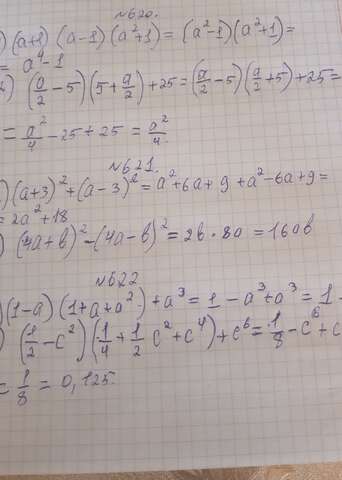 №620.
) (a+1)(a-1)(a²+1) = (a²-1)(a²+1) =
= a⁴-1
2) (a/2 - 5)(5 + a/2) + 25 = (a/2 - 5)(a/2 + 5) + 25 =
= a²/4 - 25 + 25 = a²/4.
№621.
) (a+3)² + (a-3)² = a² + 6a + 9 + a² - 6a + 9 =
= 2a² + 18
) (4a+b)² - (4a-b)² = 2b · 8a = 16ab
№622
) (1-a)(1+a+a²) + a³ = 1 - a³ + a³ = 1
) (1/2 - c²)(1/4 + 1/2 c² + c⁴) + c⁶ = 1/8 - c⁶ + c
= 1/8 = 0,125.